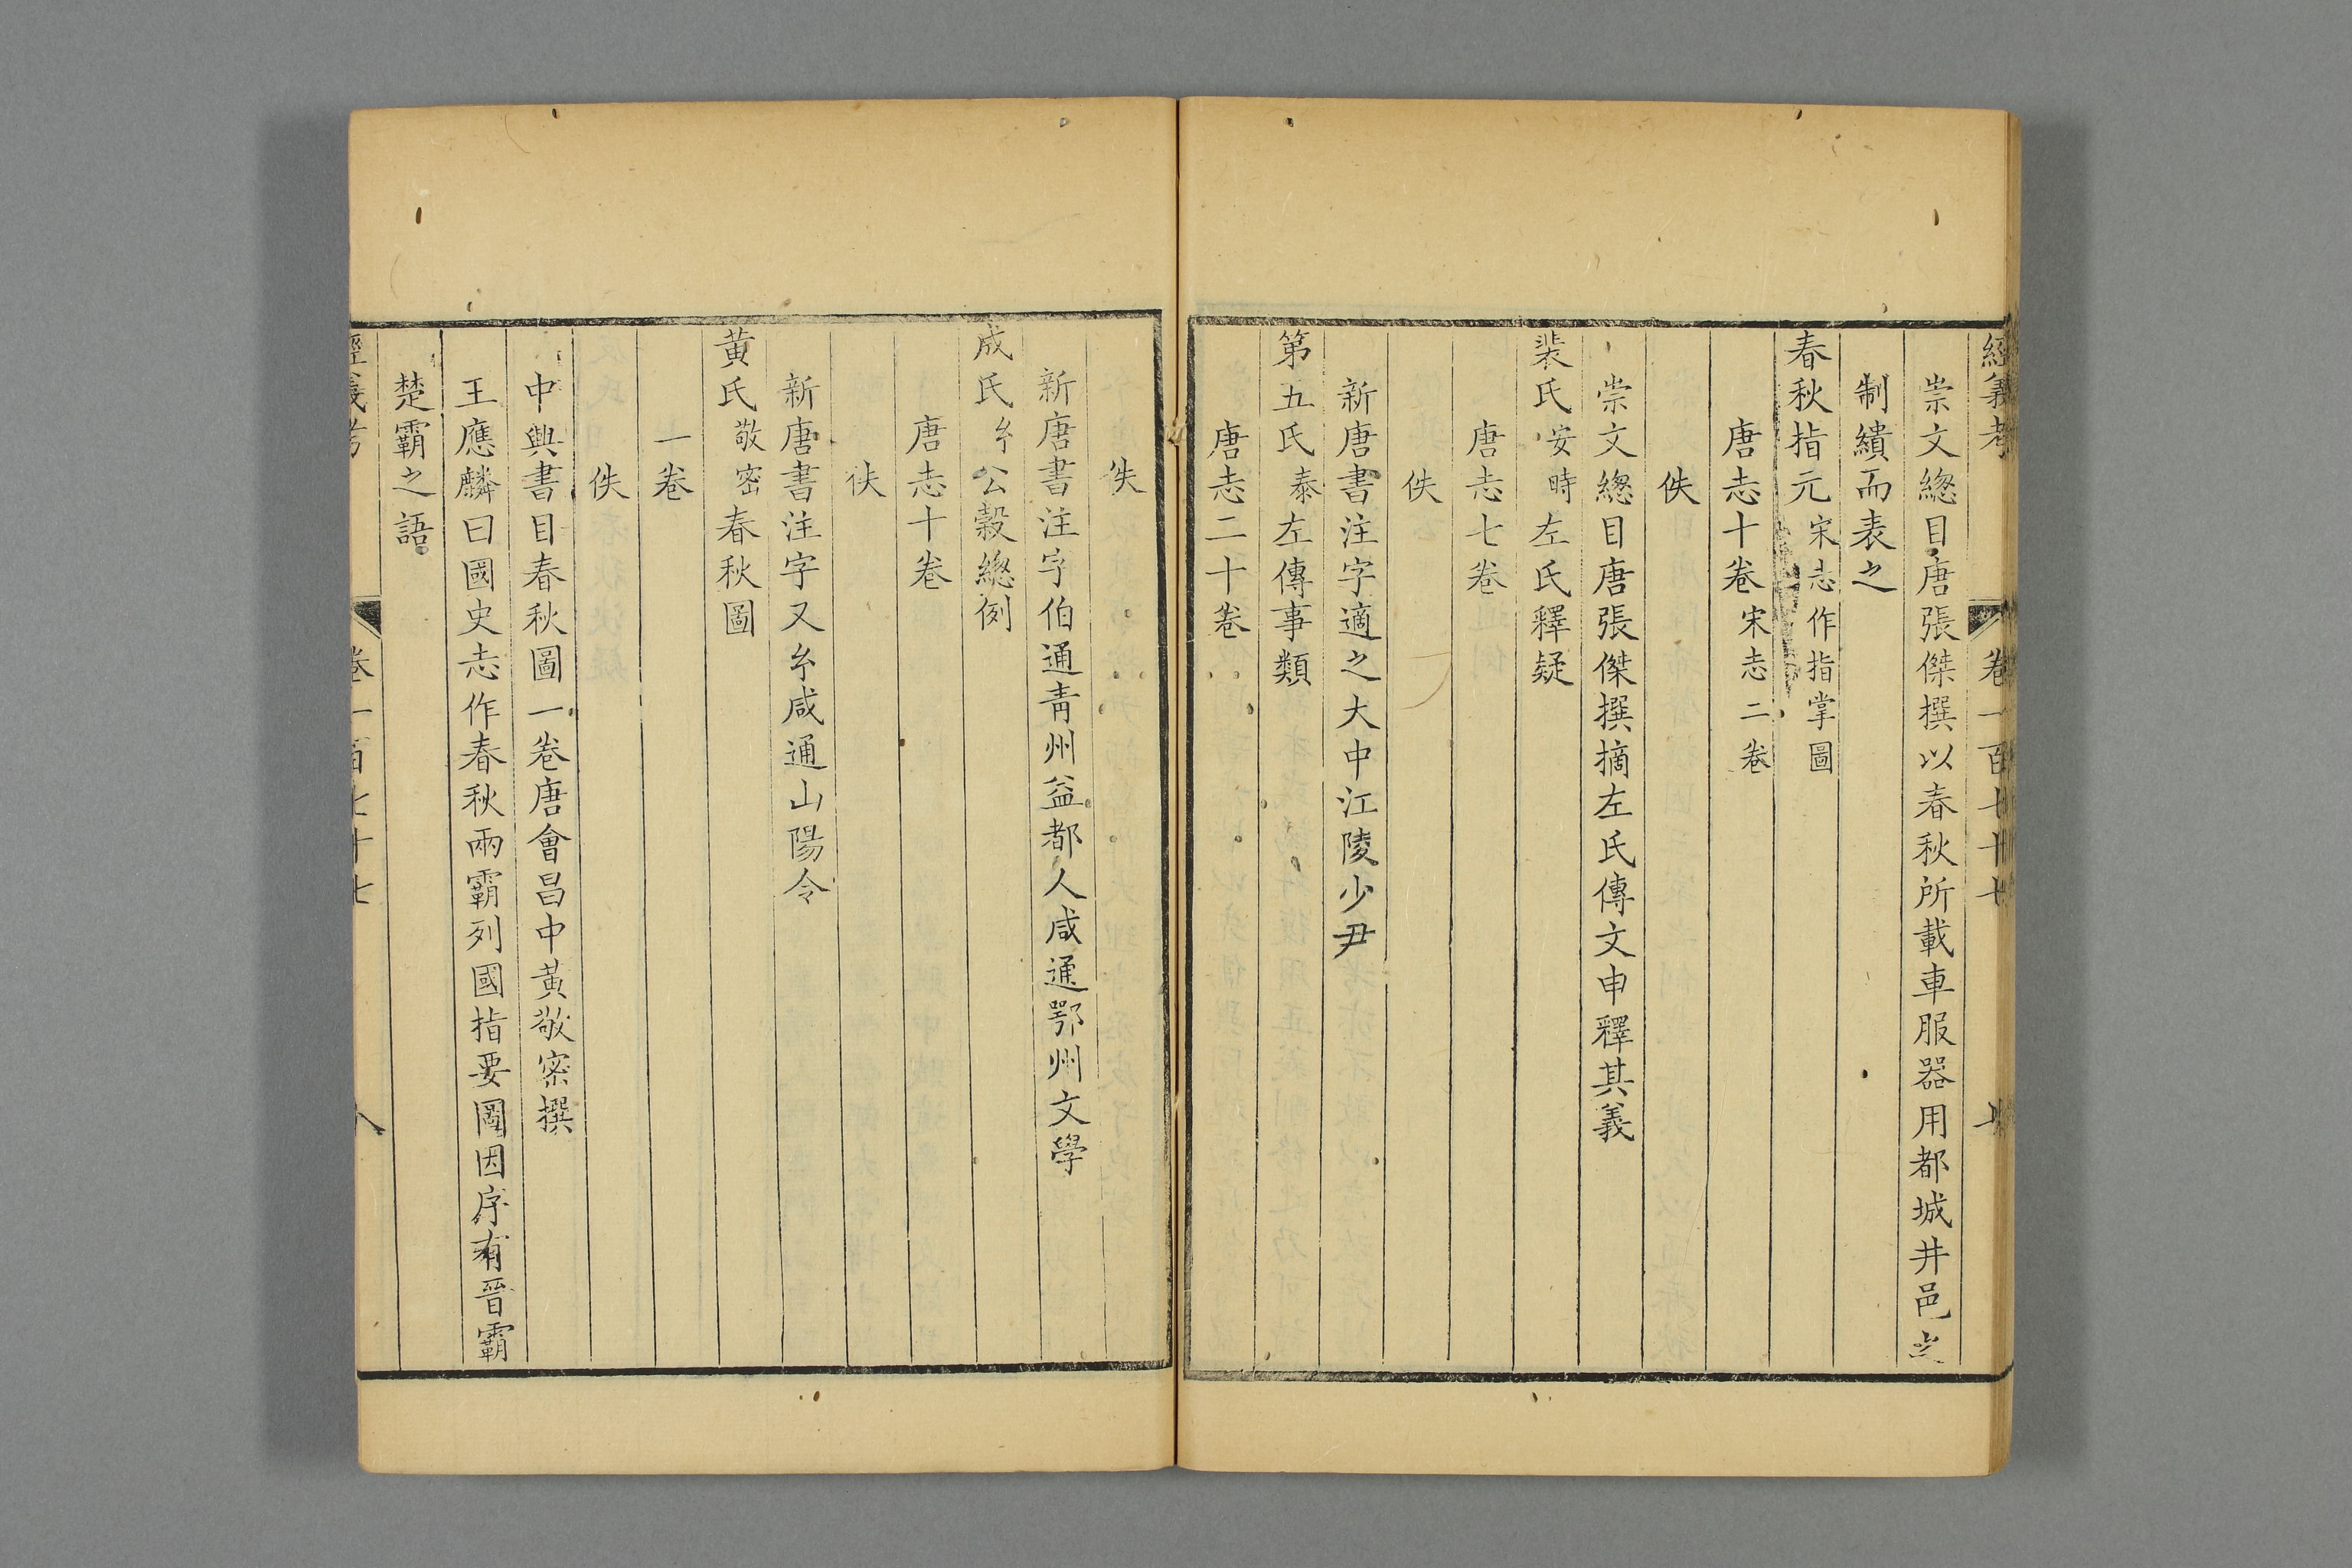 經義考 卷一百七十七
崇文總目唐張傑撰以春秋所載車服器用都城井邑之
制繢而表之
春秋指元宋志作指掌圖
唐志十卷宋志二卷
佚
崇文總目唐張傑撰摘左氏傳文申釋其義
裴氏安時左氏釋疑
唐志七卷
佚
新唐書注字適之大中江陵少尹
第五氏泰左傳事類
唐志二十卷
佚
新唐書注字伯通青州益都人咸通鄂州文學
成氏乡公穀總例
唐志十卷
佚
新唐書注字又乡咸通山陽令
黃氏敬密春秋圖
一卷
佚
中興書目春秋圖一卷唐會昌中黃敬密撰
王應麟曰國史志作春秋兩霸列國指要圖因序有晉霸
楚霸之語
經義考 卷一百七十七 八